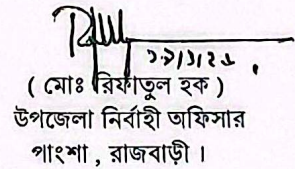 ( মোঃ রিফাতুল হক )
উপজেলা নির্বাহী অফিসার
পাংশা , রাজবাড়ী ।